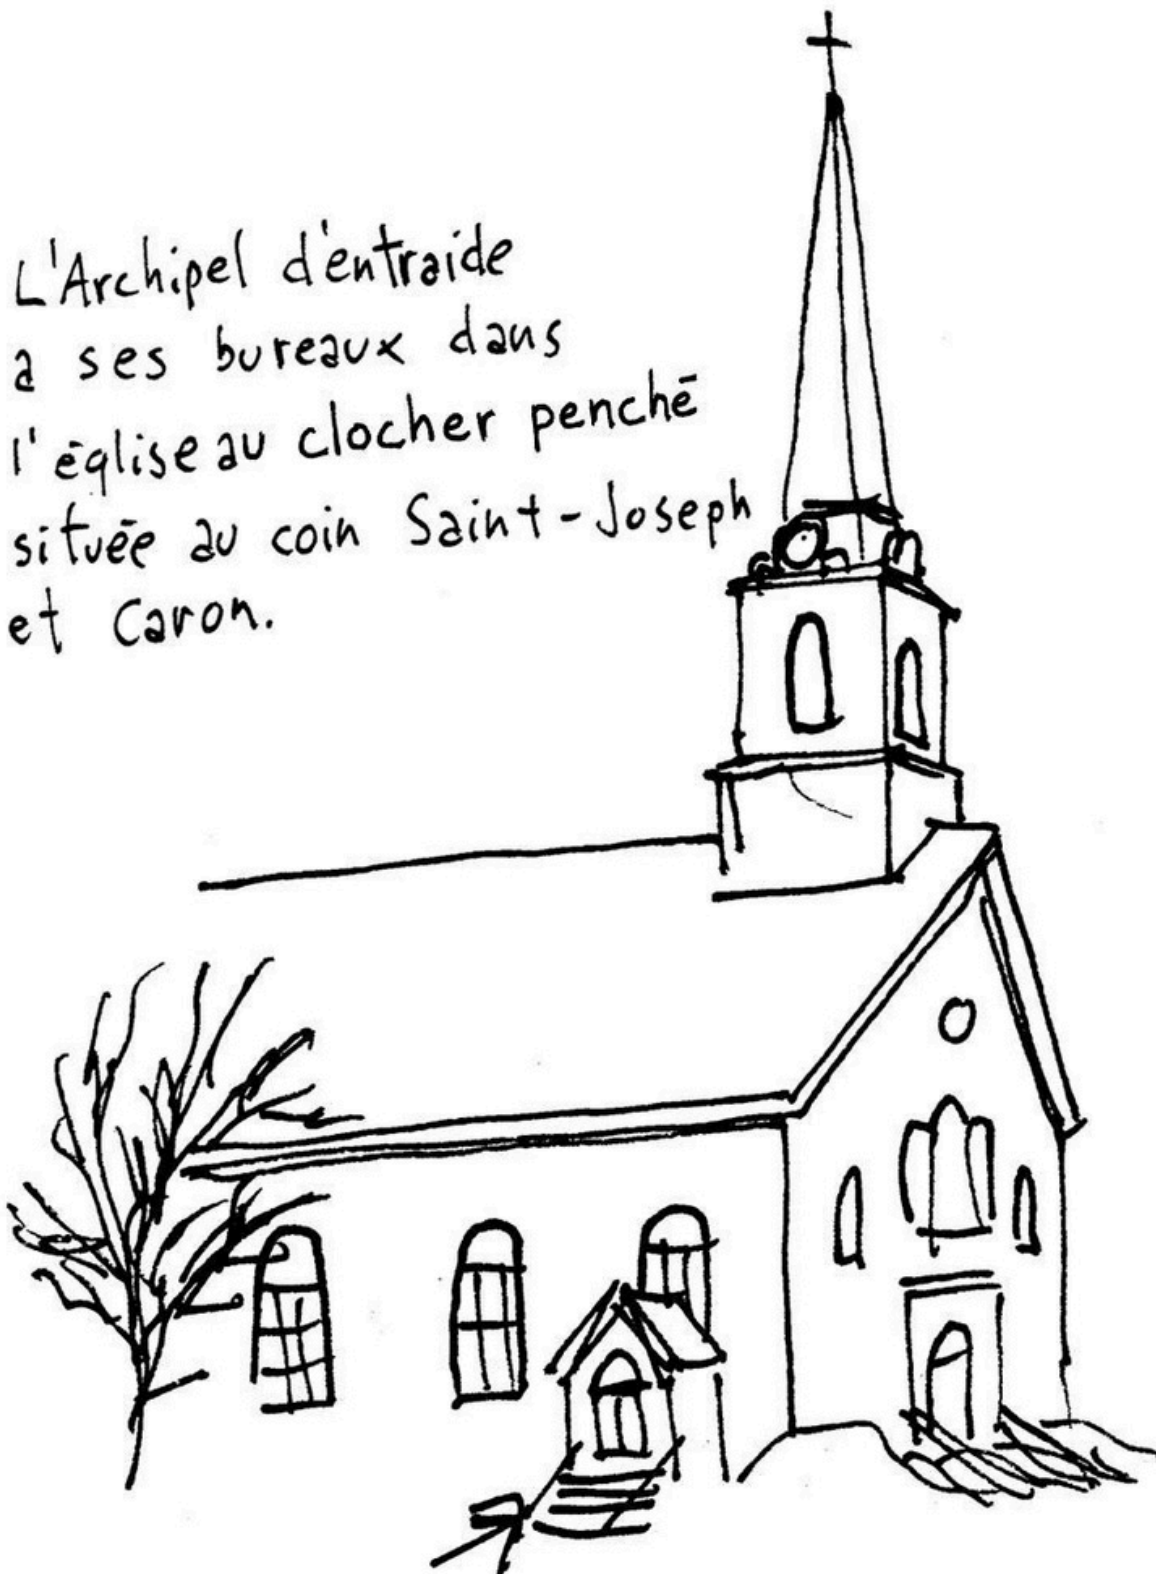 L'Archipel d'entraide
a ses bureaux dans
l'église au clocher penché
située au coin Saint-Joseph
et Caron.